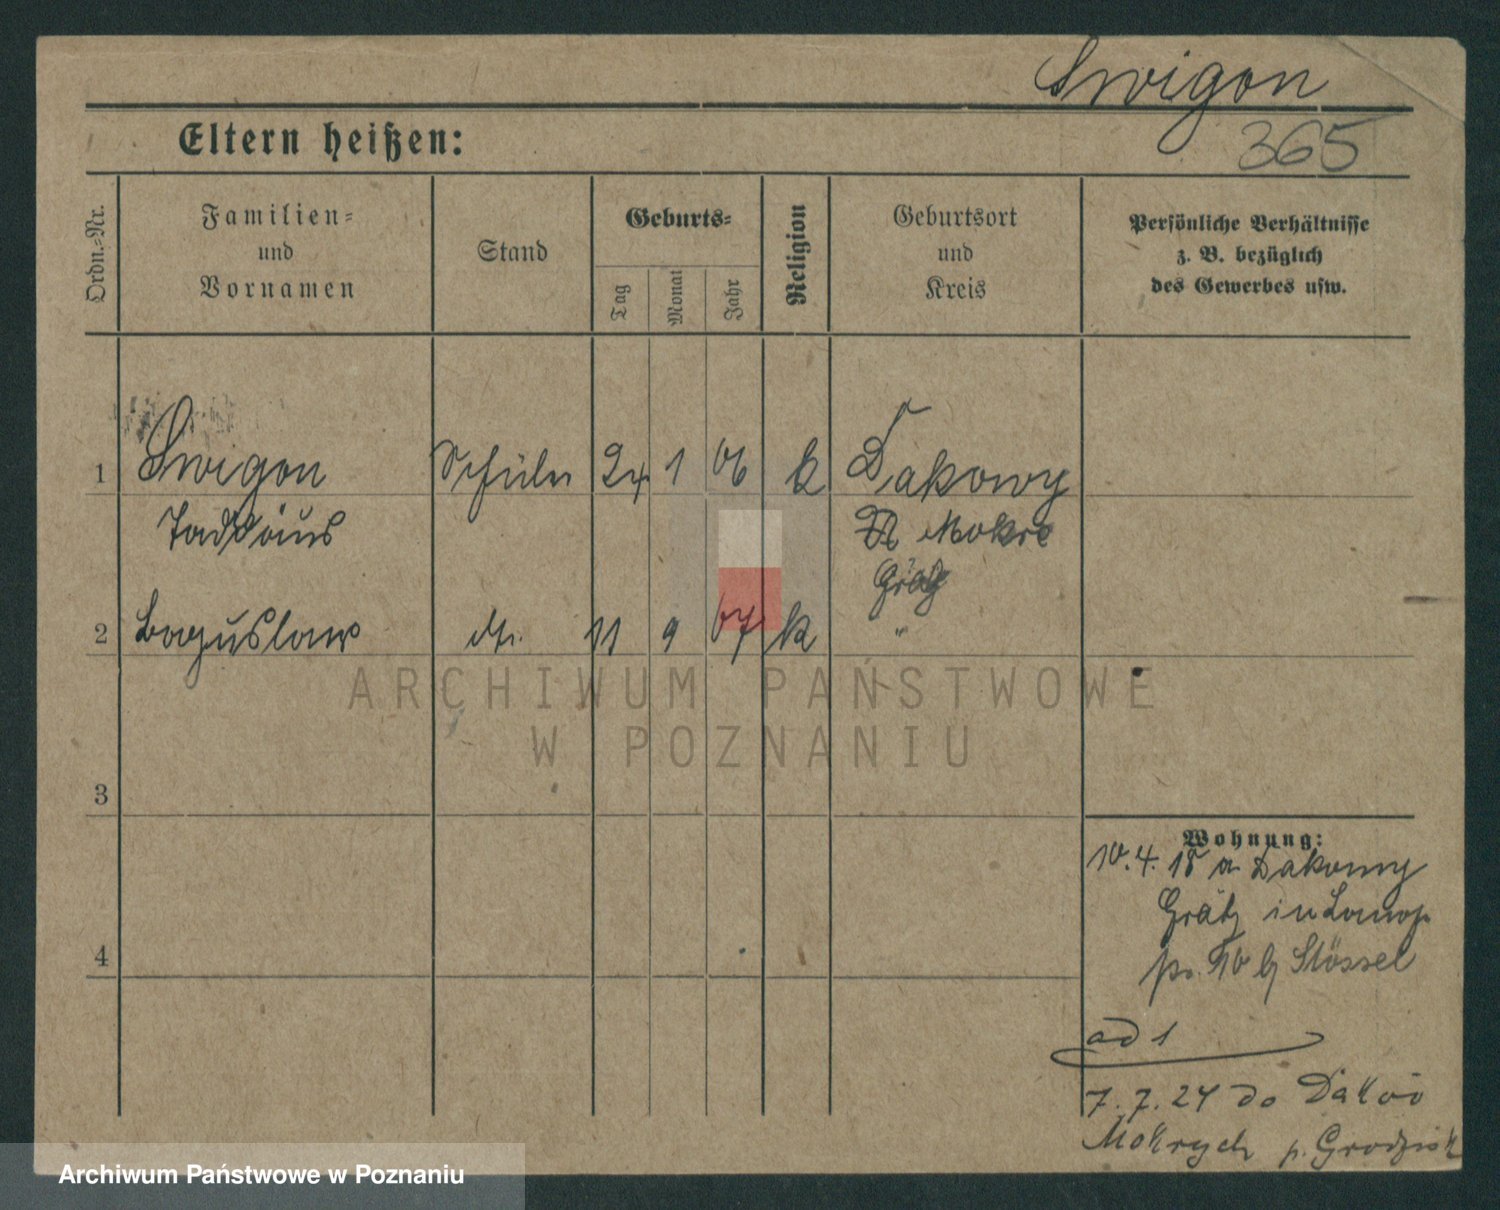 Swigon
Eltern heißen:
365
Ordn.=Nr.
Familien=
und
Vornamen
Stand
Geburts=
Tag
Monat
Jahr
Religion
Geburtsort
und
Kreis
Persönliche Verhältnisse
z. B. bezüglich
des Gewerbes usw.
1 Swigon Schüler 24 1 06 k Dakowy
Taddäus Mokre
Grätz
2 Boguslaw dt. 11 9 07 k "
ARCHIWUM PAŃSTWOWE
W POZNANIU
3
Wohnung:
10.4.18 a Dakowy
Grätz in
4
b Stössel
ad 1
7.7.24 do Daków
Mokrych p. Grodzisk
Archiwum Państwowe w Poznaniu